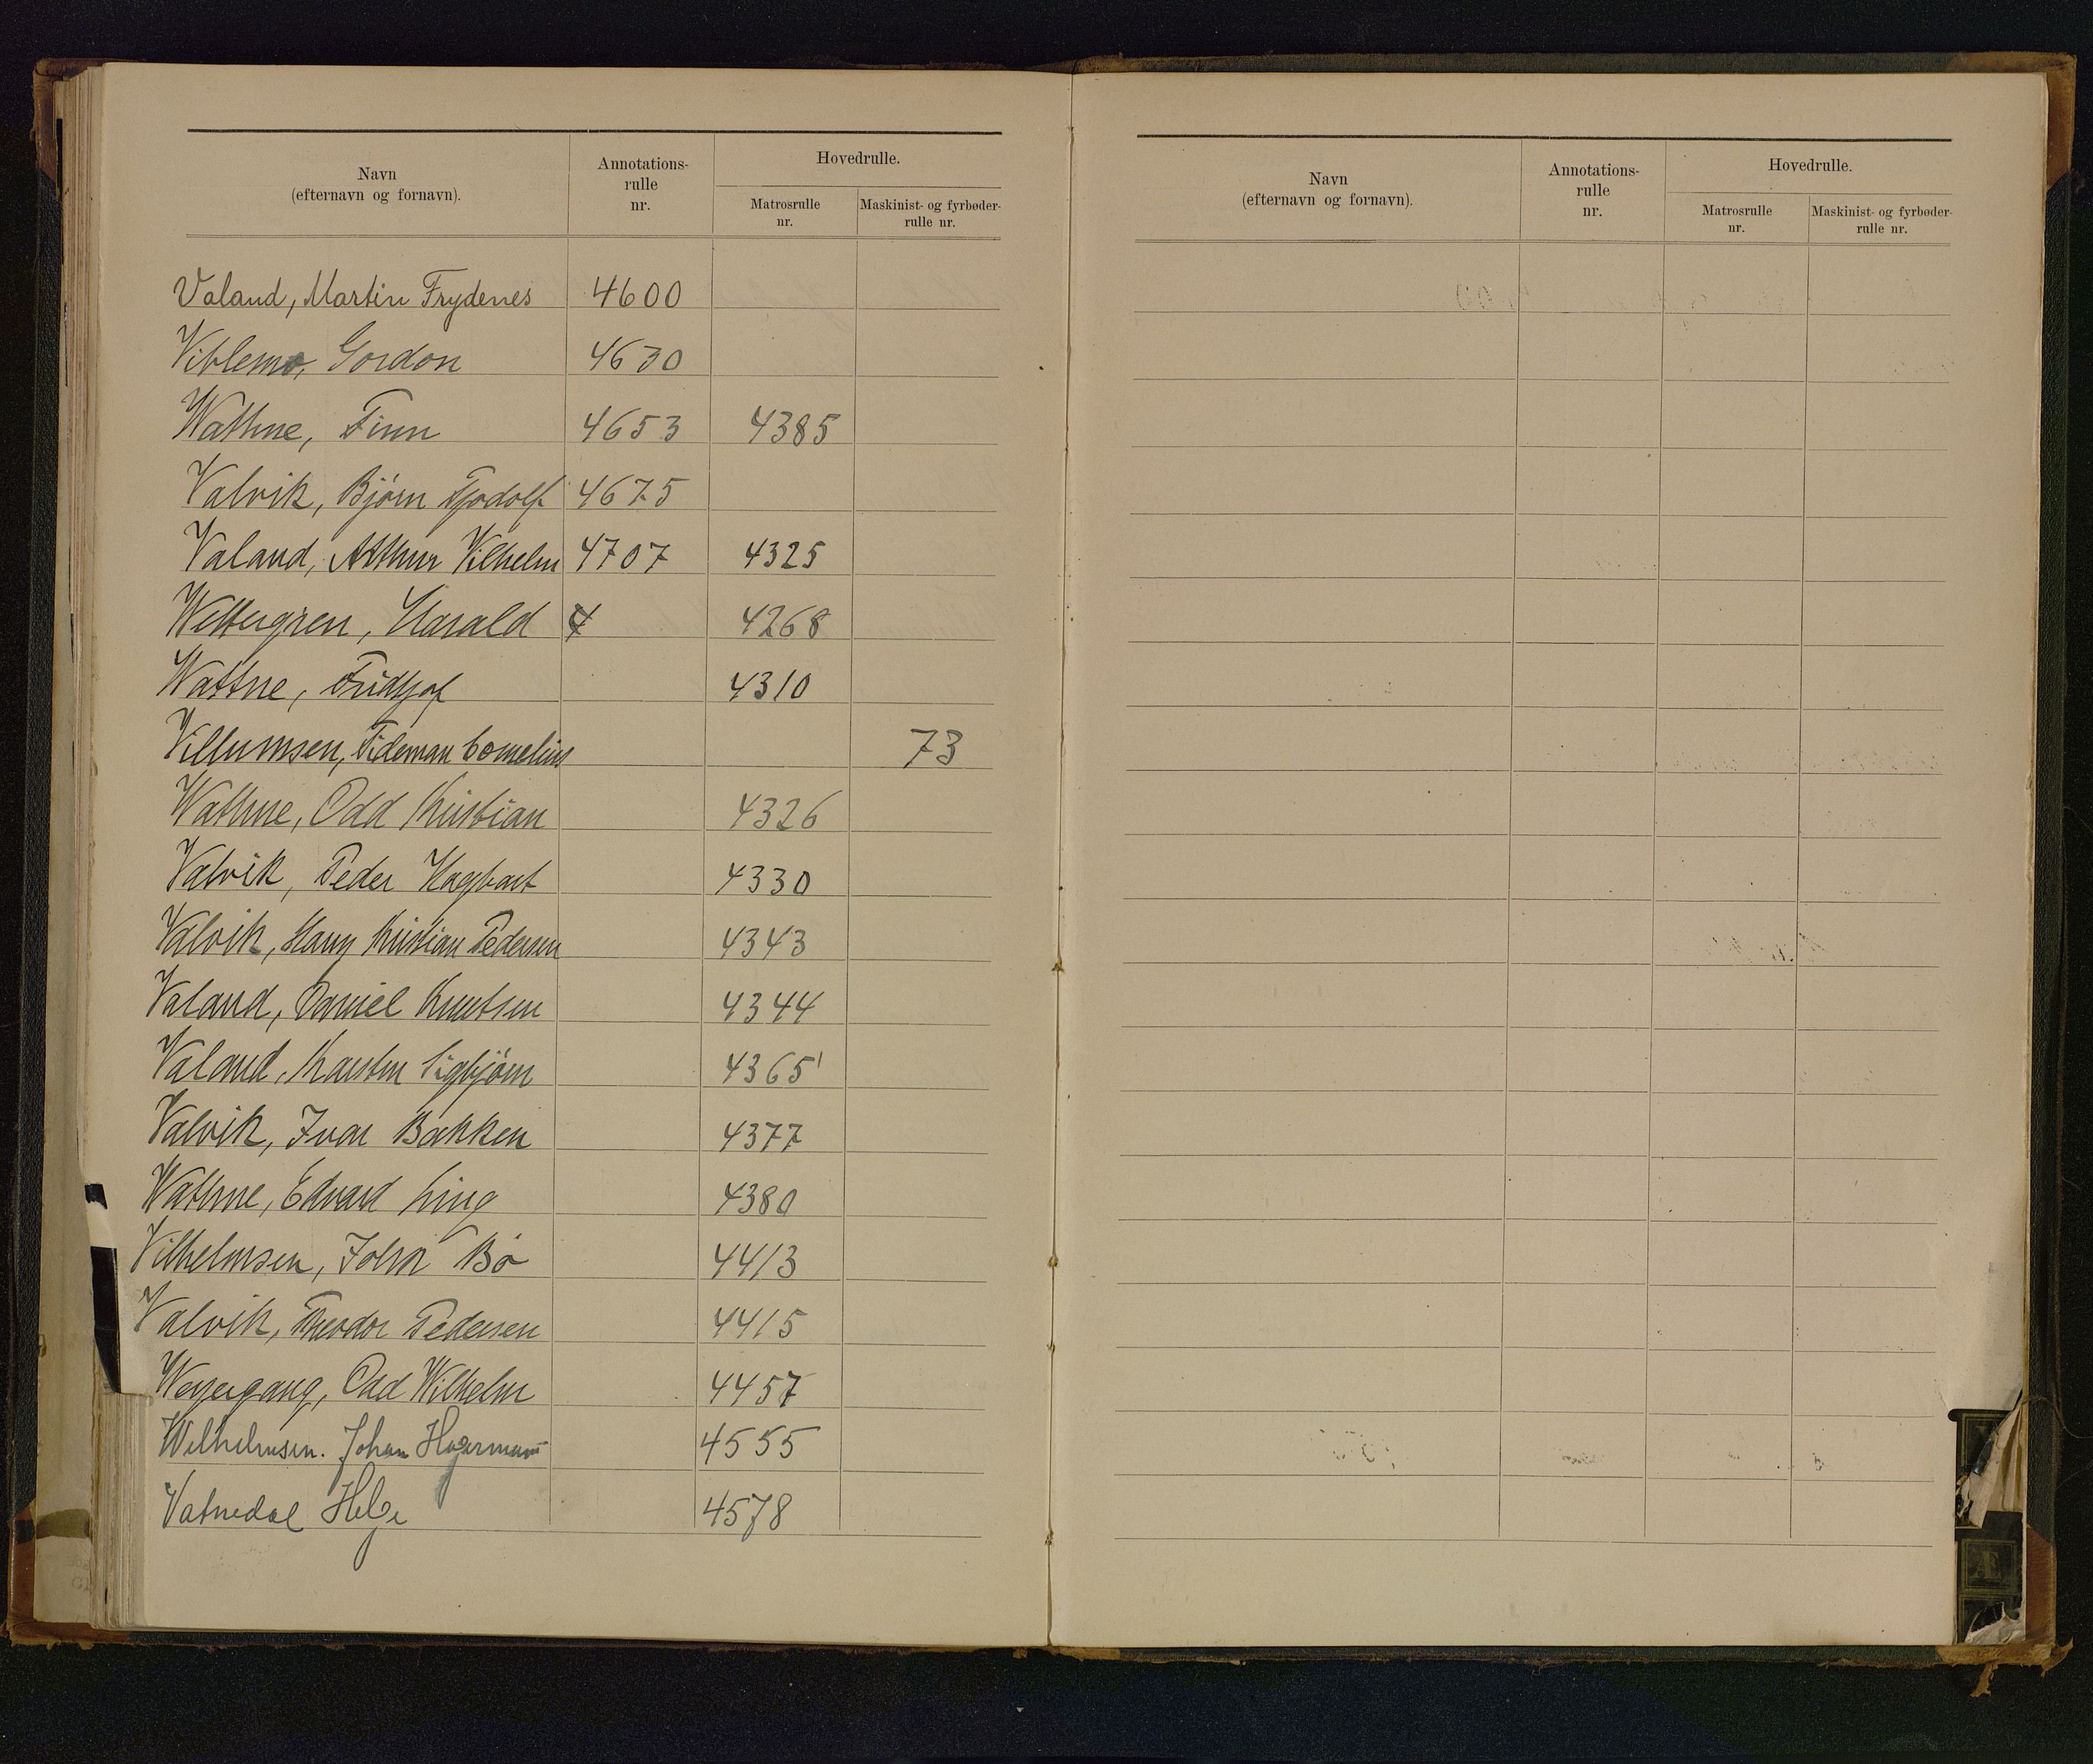 Navn
(efternavn og fornavn).
Annotations-
rulle
nr.
Hovedrulle.
Matrosrulle
nr.
Maskinist- og fyrbøder-
rulle nr.
Valand, Martin Frydenes 4600
Viblemo, Gordon 4630
Wathne, Finn 4653 4385
Valvik, Bjørn Tjodolf 4675
Valand, Arthur Vilhelm 4707 4325
Wettergren, Harald 4 4268
Wattne, Fridtjof 4310
Villumsen, Tideman Cornelius 73
Wathne, Odd Kristian 4326
Valvik, Peder Hagbart 4330
Valvik, Hans Kristian Pedersen 4343
Valand, Daniel Knutsen 4344
Valand, Karsten Sigbjørn 4365
Valvik, Ivar Bakken 4377
Wathne, Edvard Ling 4380
Vilhelmsen, John Bø 4413
Valvik, Theodor Pedersen 4415
Weyergang, Odd Wilhelm 4457
Wilhelmsen. Johan 4555
Vatnedal Helge 4578
Navn
(efternavn og fornavn).
Annotations-
rulle
nr.
Hovedrulle.
Matrosrulle
nr.
Maskinist- og fyrbøder-
rulle nr.
Æ